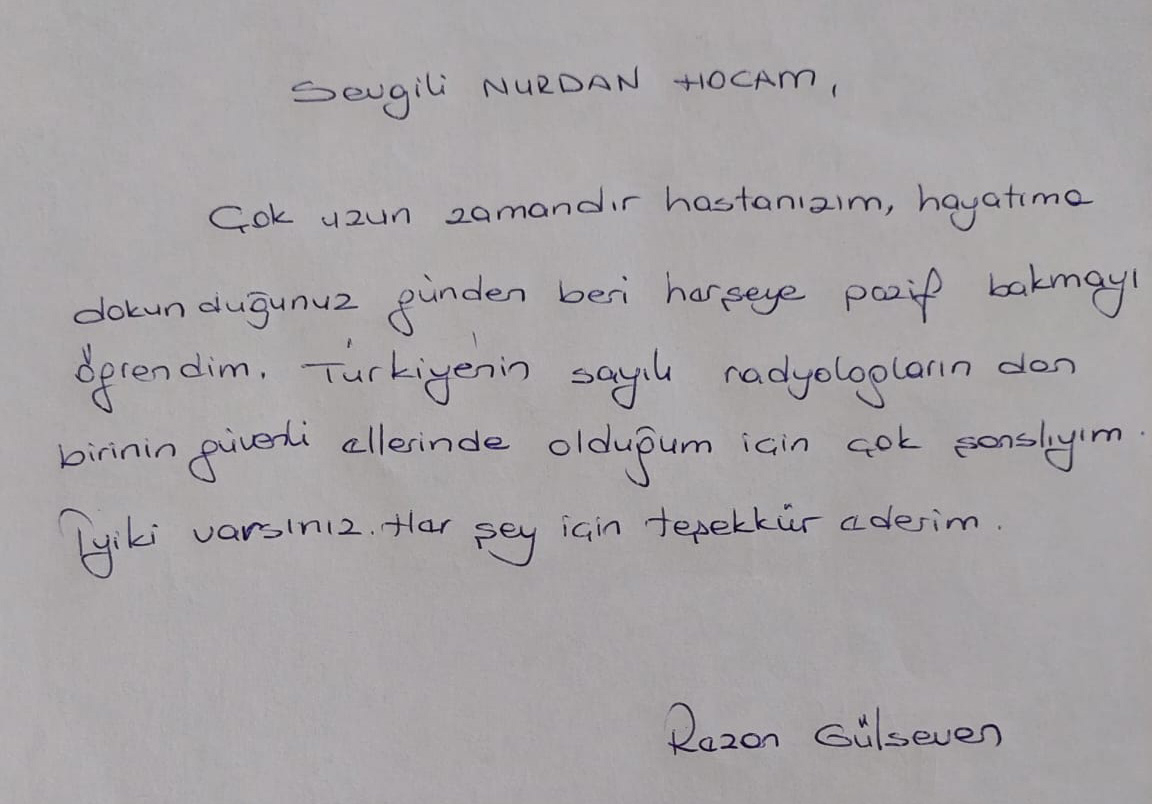 Sevgili NURDAN HOCAM,
Çok uzun zamandır hastanızım, hayatıma
dokunduğunuz günden beri herşeye pozif bakmayı
öğrendim. Türkiye'nin sayılı radyologlarından
birinin güvenli ellerinde olduğum için çok şanslıyım.
İyiki varsınız. Her şey için teşekkür ederim.
Razon Gülseven